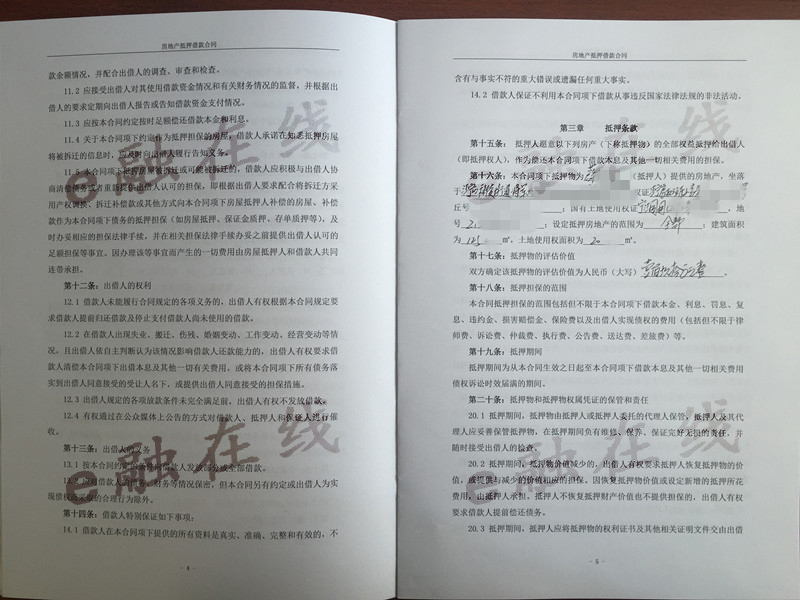 房地产抵押借款合同
款金额情况，并配合出借人的调查、审查和检查。
11.2 应接受出借人对其使用借款资金情况和有关财务情况的监督，并根据出
借人的要求定期向出借人报告或告知借款资金支付情况。
11.3 应按本合同约定按时足额偿还借款本金和利息。
11.4 关于本合同项下约定作为抵押担保的房屋，借款人承诺在知悉抵押房屋
将被拆迁的信息时，应及时向出借人履行告知义务。
11.5 本合同项下抵押房屋被拆迁或可能被拆迁的，借款人应积极与出借人协
商清偿债务或者重新提供出借人认可的担保，即根据出借人要求配合将拆迁方采
用产权调换、拆迁补偿款或其他方式向本合同项下房屋抵押人补偿的房屋、补偿
款作为本合同项下债务的抵押担保（如房屋抵押、保证金质押、存单质押等），及
时办妥相应的担保法律手续，并在相关担保法律手续办妥之前提供出借人认可的
足额担保等事宜。因办理该等事宜而产生的一切费用由房屋抵押人和借款人共同
连带承担。
第十二条：出借人的权利
12.1 借款人未能履行合同规定的各项义务的，出借人有权根据本合同规定要
求借款人提前归还借款及停止支付借款人尚未使用的借款。
12.2 在借款人出现失业、搬迁、伤残、婚姻变动、工作变动、经营变动等情
况，且出借人依自主判断认为该情况影响借款人还款能力的，出借人有权要求借
款人清偿本合同项下出借本息及其他一切有关费用，或将本合同项下所有债务落
实到出借人同意接受的受让人名下，或提供出借人同意接受的担保措施。
12.3 出借人规定的各项放款条件未完全满足前，出借人有权不发放借款。
12.4 有权通过在公众媒体上公告的方式对借款人、抵押人和保证人进行催
收。
第十三条：出借人的义务
13.1 按本合同约定的条件向借款人发放部分或全部借款。
13.2 应对借款人的债务、财务等情况保密，但本合同另有约定或出借人为实
现债权而采取的合理行为除外。
第十四条：借款人特别保证如下事项：
14.1 借款人在本合同项下提供的所有资料是真实、准确、完整和有效的，不
- 4 -
房地产抵押借款合同
含有与事实不符的重大错误或遗漏任何重大事实。
14.2 借款人保证不利用本合同项下借款从事违反国家法律法规的非法活动。
第三章 抵押条款
第十五条： 抵押人愿意以下列房产（下称抵押物）的全部权益抵押给出借人
（即抵押权人），作为偿还本合同项下借款本息及其他一切相关费用的担保。
第十六条：本合同项下抵押物为 （抵押人）提供的房地产，坐落
于 权证
丘号 ；国有土地使用权证 ，地
号 ；设定抵押房地产的范围为 全部 ；建筑面积
为 ㎡，土地使用权面积为 20 ㎡。
第十七条：抵押物的评估价值
双方确定该抵押物的评估价值为人民币（大写） 。
第十八条：抵押担保的范围
本合同抵押担保的范围包括但不限于本合同项下借款本金、利息、罚息、复
息、违约金、损害赔偿金、保险费以及出借人实现债权的费用（包括但不限于律
师费、诉讼费、仲裁费、执行费、公告费、送达费、差旅费）等。
第十九条：抵押期间
抵押期间为从本合同生效之日起至本合同项下借款本息及其他一切相关费用
债权诉讼时效届满的期间。
第二十条：抵押物和抵押物权属凭证的保管和责任
20.1 抵押期间，抵押物由抵押人或抵押人委托的代理人保管，抵押人及其代
理人应妥善保管抵押物，在抵押期间负有维修、保养、保证完好无损的责任，并
随时接受出借人的检查。
20.2 抵押期间，抵押物价值减少的，出借人有权要求抵押人恢复抵押物的价
值，或提供与减少的价值相应的担保。因恢复抵押物价值或设定新增的抵押所花
费用，由抵押人承担。抵押人不恢复抵押财产价值也不提供担保的，出借人有权
要求借款人提前偿还债务。
20.3 抵押期间，抵押人应将抵押物的权利证书及其他相关证明文件交由出借
- 5 -
e融在线
e融在线
e融在线
e融在线